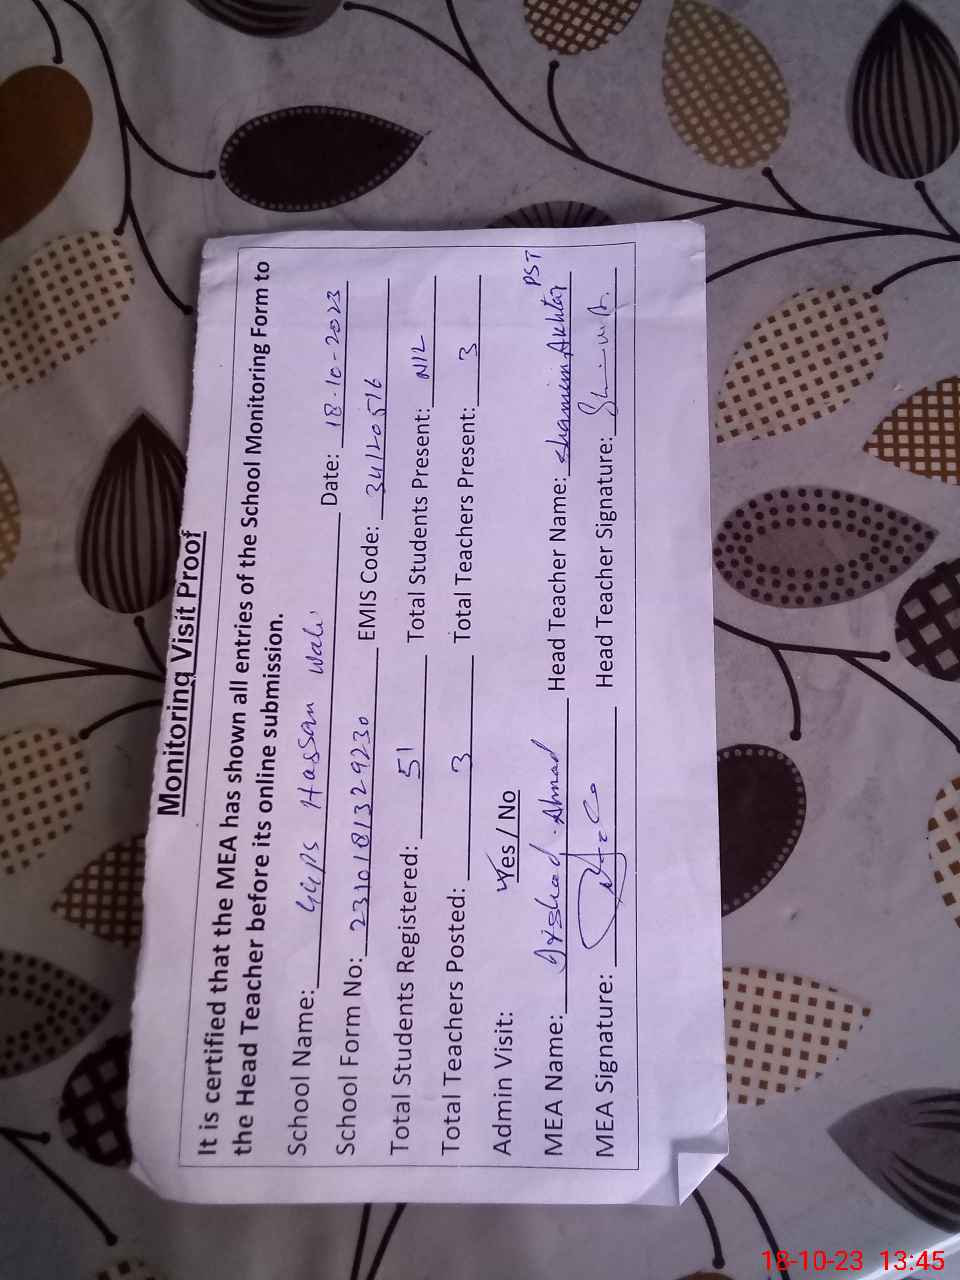 Monitoring Visit Proof
It is certified that the MEA has shown all entries of the School Monitoring Form to
the Head Teacher before its online submission.
School Name: GGPS Hassan Wali Date: 18-10-2023
School Form No: 2310181329230 EMIS Code: 34120516
Total Students Registered: 51 Total Students Present: NIL
Total Teachers Posted: 3 Total Teachers Present: 3
Admin Visit: Yes / No
MEA Name: Arshad Ahmad Head Teacher Name: Shamim Akhtar PST
MEA Signature: Head Teacher Signature:
18-10-23 13:45